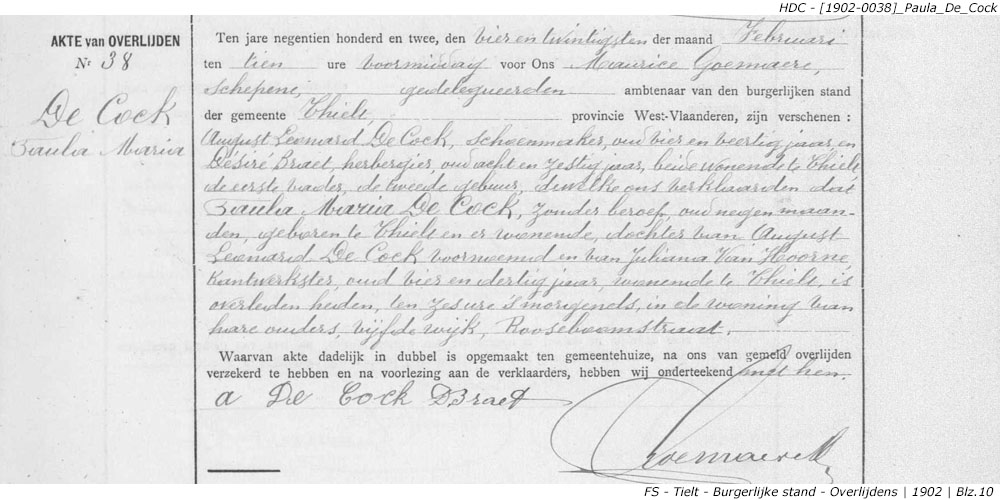 HDC - [1902-0038]_Paula_De_Cock
AKTE van OVERLIJDEN
Nr 38
De Cock
Paula Maria
Ten jare negentien honderd en twee, den vier en twintigsten der maand Februari
ten tien ure voormiddag voor Ons Maurice Goemaere,
Schepene, gedelegueerden ambtenaar van den burgerlijken stand
der gemeente Thielt, provincie West-Vlaanderen, zijn verschenen :
August Leonard De Cock, schoenmaker, oud vier en veertig jaar, en
Désiré Braet, herbergier, oud acht en zestig jaar, beide wonende te Thielt
de eerste vader, de tweede gebuur, dewelke ons verklaarden dat
Paula Maria De Cock, zonder beroep, oud negen maan-
den, geboren te Thielt en er wonende, dochter van August
Leonard De Cock voornoemd en van Juliana Van Hoorne
kantwerkster, oud vier en dertig jaar, wonende te Thielt, is
overleden heden, ten zes ure 's morgends, in de woning van
hare ouders vijfde wijk, Rooseboomstraat.
Waarvan akte dadelijk in dubbel is opgemaakt ten gemeentehuize, na ons van gemeld overlijden
verzekerd te hebben en na voorlezing aan de verklaarders, hebben wij onderteekend met hen.
a De Cock DBraet
Goemaere M
FS - Tielt - Burgerlijke stand - Overlijdens | 1902 | Blz.10